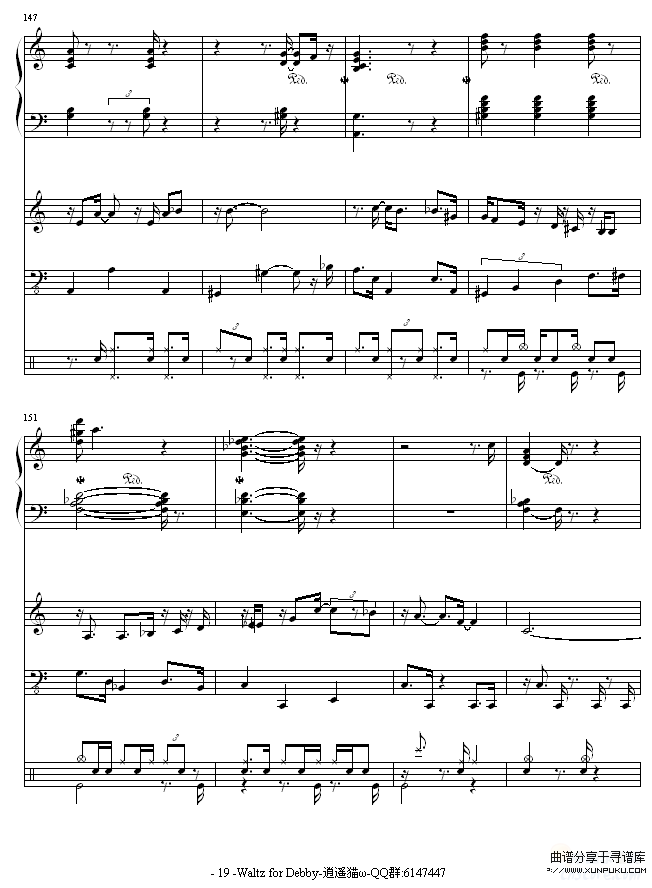 147
3
Ped.
Ped.
Ped.
3
3
3
3
3
151
Ped.
Ped.
3
3
- 19 -Waltz for Debby-逍遥猫ω-QQ群:6147447
曲谱分享于寻谱库
WWW.XUNPUKU.COM